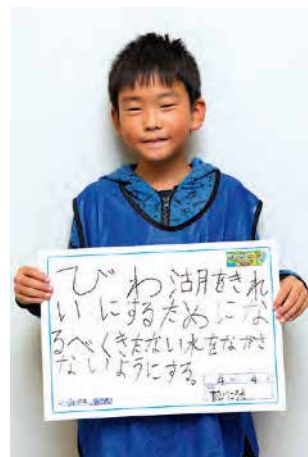 びわ湖をきれ
いにするためにな
るべくきたない水をながさ
ないようにする。
4 4